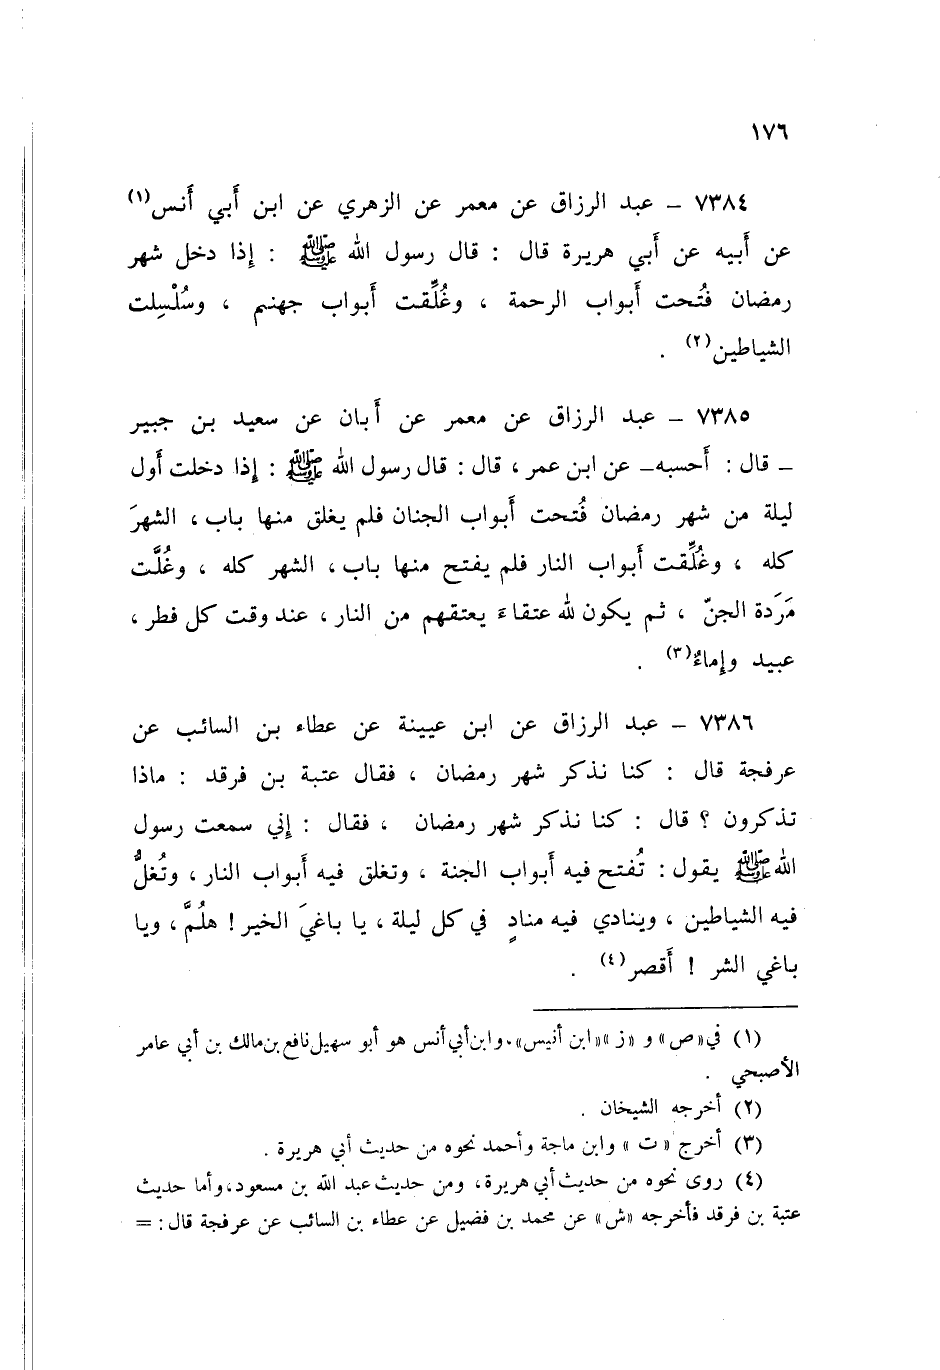 ١٧٦
٧٣٨٤ – عبد الرزاق عن معمر عن الزهري عن ابن أبي أنس(١)
عن أبيه عن أبي هريرة قال : قال رسول الله ﷺ : إذا دخل شهر
رمضان فُتحت أبواب الرحمة ، وغُلِّقت أبواب جهنم ، وسُلْسِلت
الشياطين(٢) .
٧٣٨٥ – عبد الرزاق عن معمر عن أبان عن سعيد بن جبير
– قال : أحسبه – عن ابن عمر ، قال : قال رسول الله ﷺ : إذا دخلت أول
ليلة من شهر رمضان فُتحت أبواب الجنان فلم يغلق منها باب ، الشهرَ
كله ، وغُلِّقت أبواب النار فلم يفتح منها باب ، الشهر كله ، وغُلَّت
مَرَدة الجنّ ، ثم يكون لله عتقاء يعتقهم من النار ، عند وقت كل فطر ،
عبيد وإماءٌ(٣) .
٧٣٨٦ – عبد الرزاق عن ابن عيينة عن عطاء بن السائب عن
عرفجة قال : كنا نذكر شهر رمضان ، فقال عتبة بن فرقد : ماذا
تذكرون ؟ قال : كنا نذكر شهر رمضان ، فقال : إني سمعت رسول
الله ﷺ يقول : تُفتح فيه أبواب الجنة ، وتغلق فيه أبواب النار ، وتُغلُّ
فيه الشياطين ، وينادي فيه منادٍ في كل ليلة ، يا باغيَ الخير ! هلُمَّ ، ويا
باغي الشر ! أقصر(٤) .
(١) في «ص» و «ز» «ابن أنيس» . وابن أبي أنس هو أبو سهيل نافع بن مالك بن أبي عامر
الأصبحي .
(٢) أخرجه الشيخان .
(٣) أخرج « ت » وابن ماجة وأحمد نحوه من حديث أبي هريرة .
(٤) روى نحوه من حديث أبي هريرة ، ومن حديث عبد الله بن مسعود ، وأما حديث
عتبة بن فرقد فأخرجه «ش» عن محمد بن فضيل عن عطاء بن السائب عن عرفجة قال : =